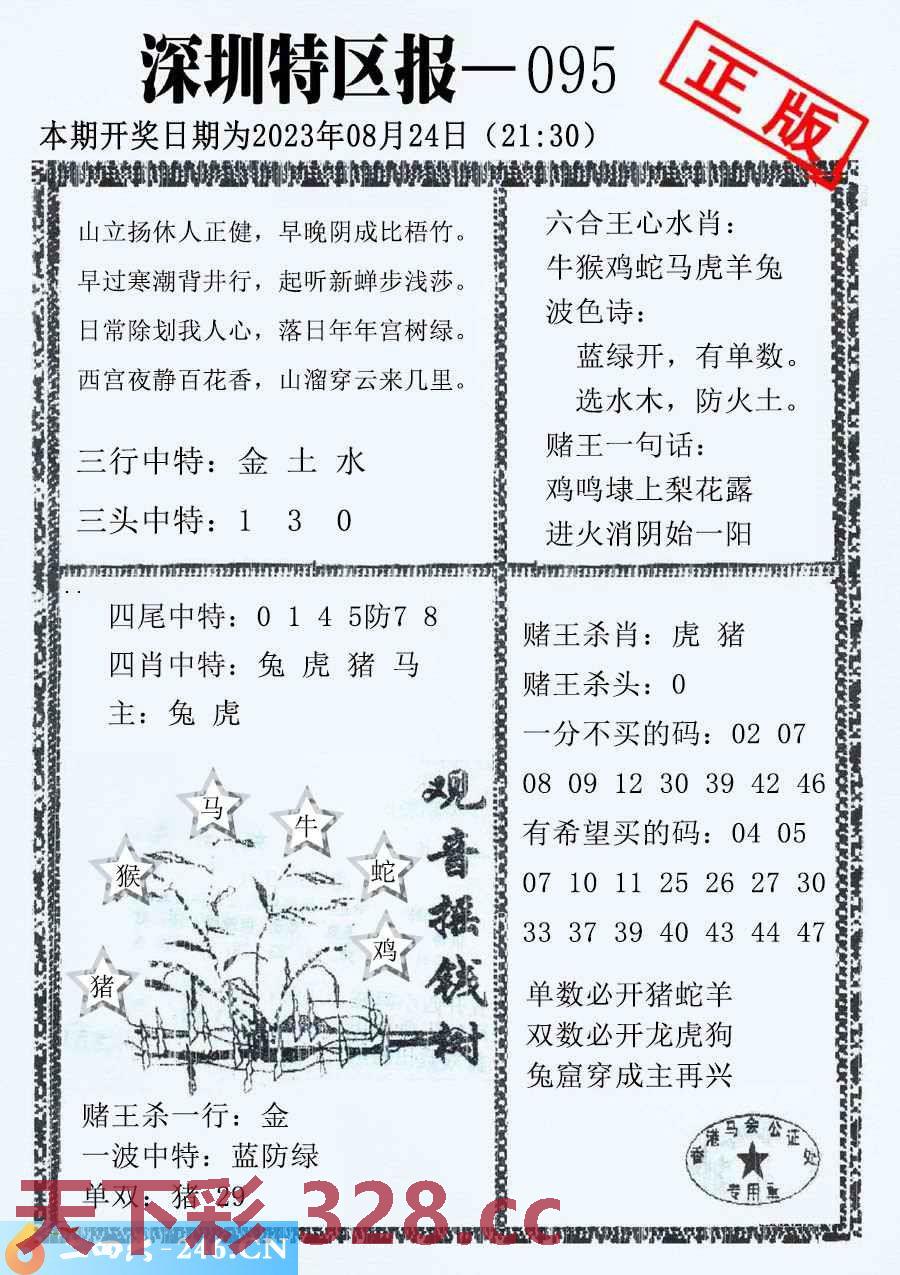 深圳特区报—095
正版
本期开奖日期为2023年08月24日（21:30）
山立扬休人正健，早晚阴成比梧竹。
早过寒潮背井行，起听新蝉步浅莎。
日常除划我人心，落日年年宫树绿。
西宫夜静百花香，山溜穿云来几里。
三行中特：金 土 水
三头中特：1 3 0
六合王心水肖：
牛猴鸡蛇马虎羊兔
波色诗：
蓝绿开，有单数。
选水木，防火土。
赌王一句话：
鸡鸣埭上梨花露
进火消阴始一阳
四尾中特：0 1 4 5防7 8
四肖中特：兔 虎 猪 马
主：兔 虎
观音摇钱树
马
牛
猴
蛇
鸡
猪
赌王杀一行：金
一波中特：蓝防绿
单双：猪 29
赌王杀肖：虎 猪
赌王杀头：0
一分不买的码：02 07
08 09 12 30 39 42 46
有希望买的码：04 05
07 10 11 25 26 27 30
33 37 39 40 43 44 47
单数必开猪蛇羊
双数必开龙虎狗
兔窟穿成主再兴
香港马会公证处
专用章
天下彩 328.cc
-246.CN